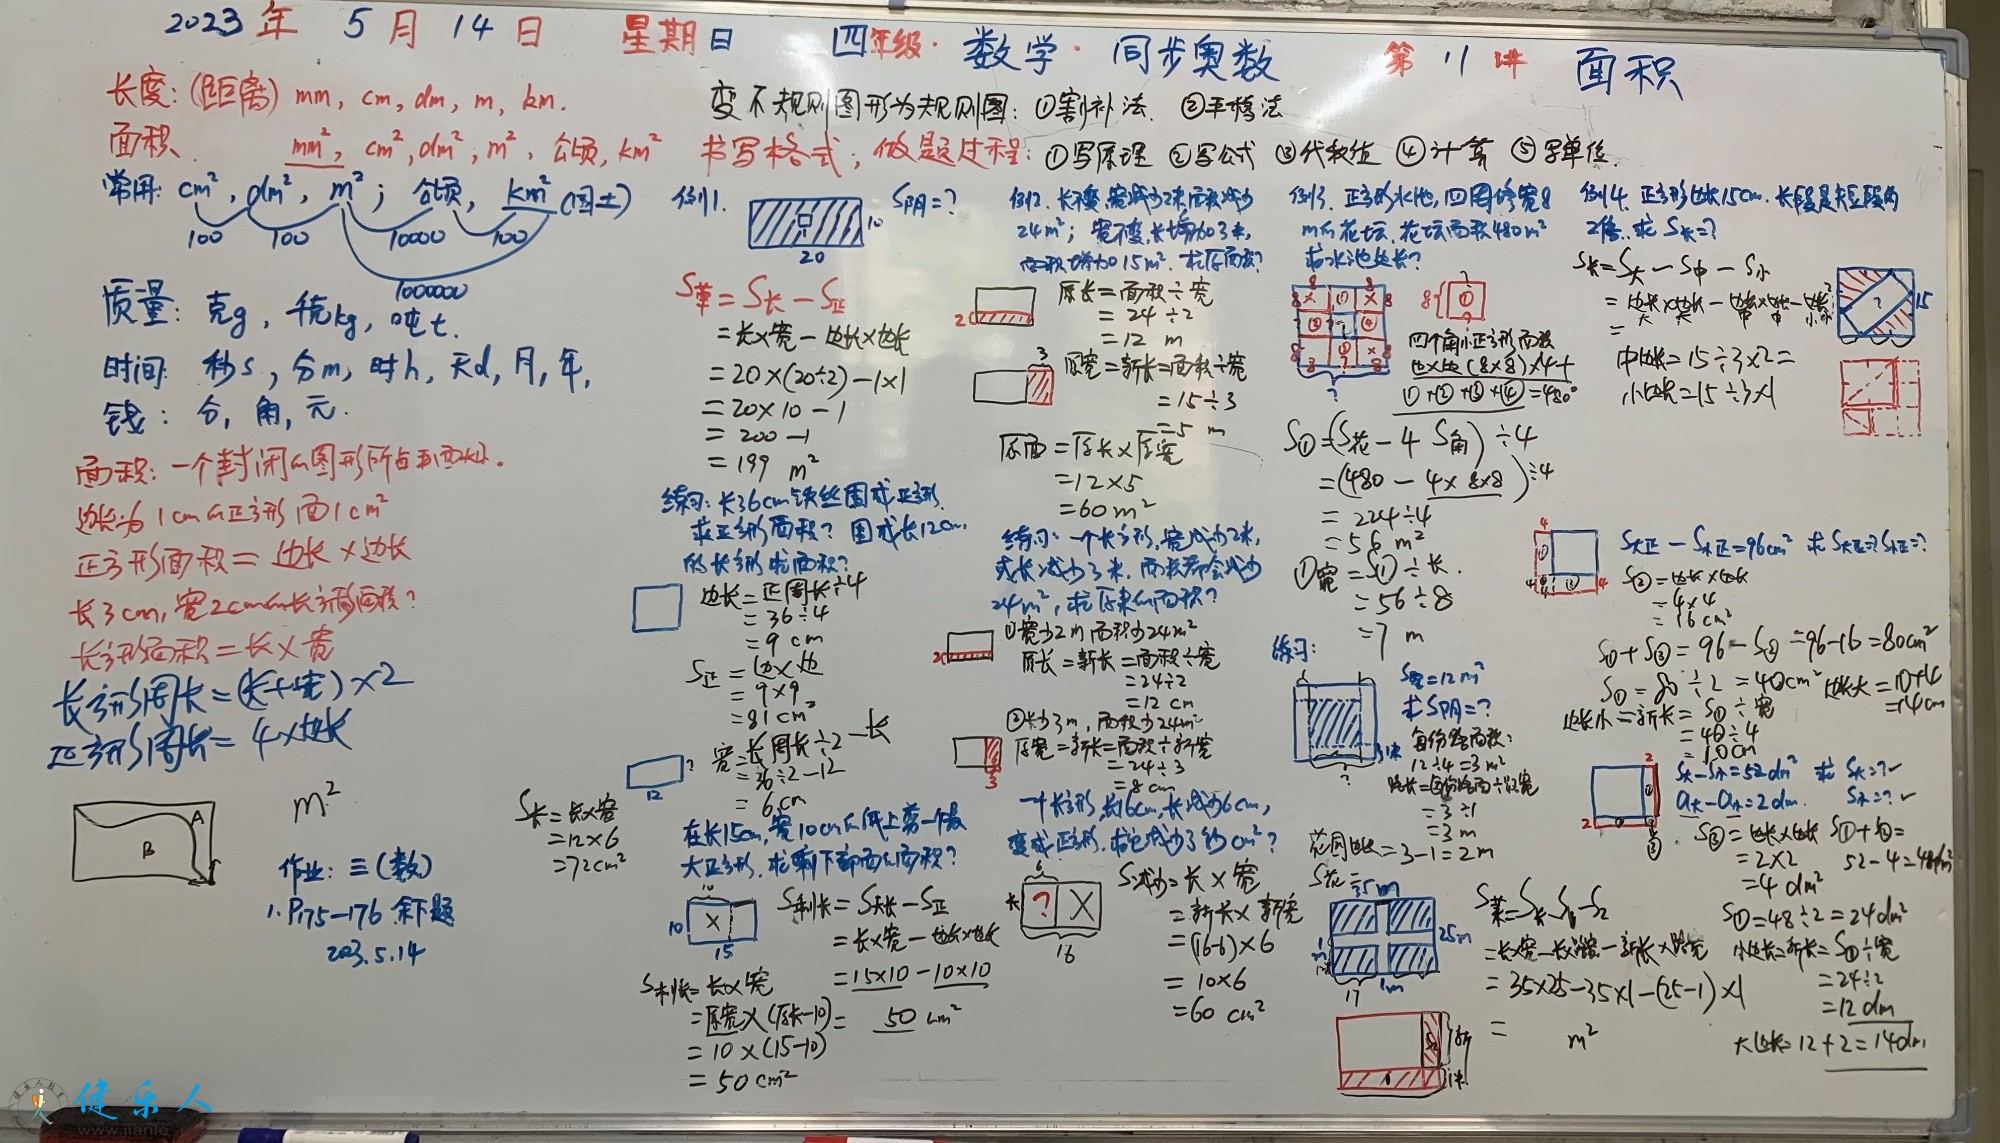 2023年 5月14日 星期日 四年级·数学·同步奥数 第11讲 面积
长度:(距离) mm, cm, dm, m, km.
面积 mm², cm², dm², m², 公顷, km²
常用: cm², dm², m²; 公顷, km² (国土)
100 100 10000 100
1000000
质量: 克g, 千克kg, 吨t.
时间: 秒s, 分m, 时h, 天d, 月, 年,
钱: 分, 角, 元.
面积: 一个封闭的图形所占平面大小.
边长为1cm的正方形面1cm²
正方形面积=边长×边长
长3cm, 宽2cm的长方形面积?
长方形面积=长×宽
长方形周长=(长+宽)×2
正方形周长=4×边长
A
B
m²
作业: 三(数)
1. P175-176 余下题
2023.5.14
变不规则图形为规则图: ①割补法. ②平移法
书写格式, 做题过程: ①写原理 ②写公式 ③代数值 ④计算 ⑤写单位.
例1. S阴=?
10
20
S草=S长-S正
=长×宽-边长×边长
=20×(20÷2)-1×1
=20×10-1
=200-1
=199 m²
练习: 长36cm铁丝围成正方形
求正方形面积? 围成长12cm
的长方形求面积?
边长=正周长÷4
=36÷4
=9 cm
S正=边×边
=9×9
=81cm²
宽=长周长÷2-长
=36÷2-12
=6cm
?
12
S长=长×宽
=12×6
=72cm²
在长15cm, 宽10cm的纸上剪一个最
大正方形, 求剩下部面的面积?
10
10
15
S剩长=S大长-S正
=长×宽-边长×边长
=15×10-10×10
=50cm²
S剩长=长×宽
=原宽×(原长-10)
=10×(15-10)
=50cm²
例2. 长不变, 宽减少2米, 面积减少
24m²; 宽不变, 长增加3米,
面积增加15m². 求原面积?
2
原长=面积÷宽
=24÷2
=12 m
3
原宽=新长=面积÷宽
=15÷3
=5 m
原面=原长×原宽
=12×5
=60m²
练习: 一个长方形, 宽减少2米,
或长减少3米, 面积都会减少
24m², 求原来的面积?
①宽少2m 面积少24m²
2
原长=新长=面积÷宽
=24÷2
=12 cm
②长少3m, 面积少24m²
原宽=新长=面积÷新宽
=24÷3
=8cm
3
一个长方形, 长16cm, 长减少6cm,
变成正方形. 求它减少了多少cm²?
6
?
16
S减少=长×宽
=新长×新宽
=(16-6)×6
=10×6
=60 cm²
例3. 正方形水池, 四周修宽8
m的花坛, 花坛面积480m²
求水池边长?
8
四个角小正方形面积
边×边(8×8)×4+
①+②+③+④=480
S①=(S花-4S角)÷4
=(480-4×8×8)÷4
=224÷4
=56 m²
①宽=S①÷长.
=56÷8
=7 m
练习:
S路=12m²
求S阴=?
每份路面积:
12÷4=3m²
=3÷1
=3m
花园边长=3-1=2m
S花=
35m
25m
1m
17
S草=S长-S1-S2
=35×25-35×1-(25-1)×1
= m²
例4. 正方形边长15cm. 长段是短段的
2倍. 求S长=?
S长=S大-S中-S小
15
中边长=15÷3×2=
小边长=15÷3×1
S大正-S小正=96cm² 求S大正=? S小正=?
S②=边长×边长
=4×4
=16cm²
S①+S③=96-S②=96-16=80cm²
S①=80÷2=40cm² 边长大=10+4
=14cm
边长小=新长=S①÷宽
=40÷4
=10cm
S大-S小=52dm² 求 S大=?
a大-a小=2dm. S小=?
S③=边长×边长 S①+S②=
=2×2 52-4=48dm²
=4 dm²
S①=48÷2=24dm²
小边长=新长=S①÷宽
=24÷2
=12dm
大边长=12+2=14dm
健乐人
www.jianle